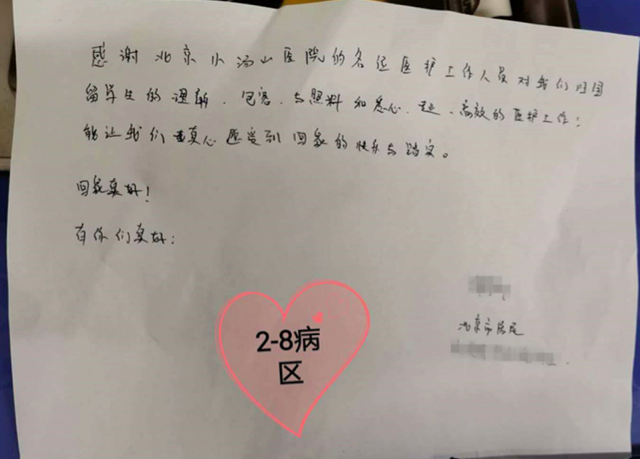 感谢北京小汤山医院的各位医护工作人员对我们归国
留学生的理解、包容、与照料和悉心、高效的医护工作!
能让我们真心感觉到回家的快乐与踏实。
回家真好!
有你们真好!
2-8病
区
北京市居民